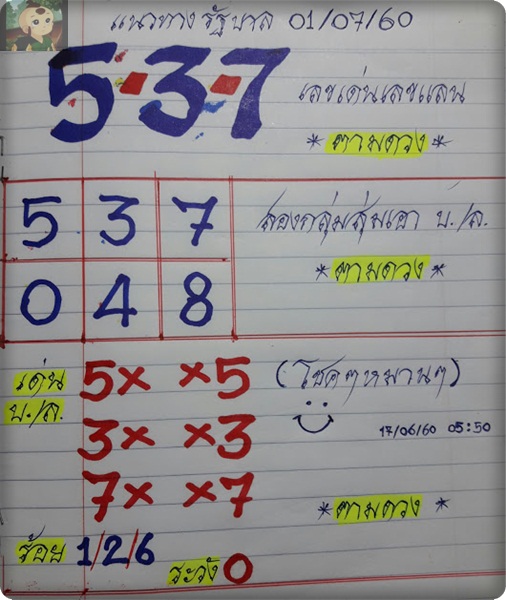 แนวทาง รัฐบาล 01/07/60
5-3-7
เลขเด่นเลขแลน
*ตามดวง*
5 3 7
สองกลุ่มสุ่มเอา บ./ล.
0 4 8
*ตามดวง*
เด่น
บ./ล.
5x x5
(โชคๆหมานๆ)
3x x3
17/06/60 05:50
7x x7
*ตามดวง*
ร้อย 1/2/6
ระวัง 0